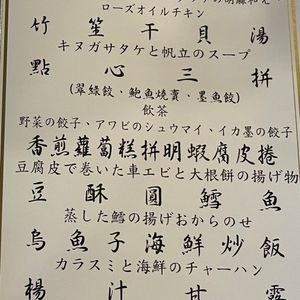 ローズオイルチキン
竹笙干貝湯
キヌガサタケと帆立のスープ
點心三拼
(翠綠餃、鮑魚燒賣、墨魚餃)
飲茶
野菜の餃子、アワビのシュウマイ、イカ墨の餃子
香煎蘿蔔糕拼明蝦腐皮捲
豆腐皮で巻いた車エビと大根餅の揚げ物
豆酥圓鱈魚
蒸した鱈の揚げおからのせ
烏魚子海鮮炒飯
カラスミと海鮮のチャーハン
楊汁甘露